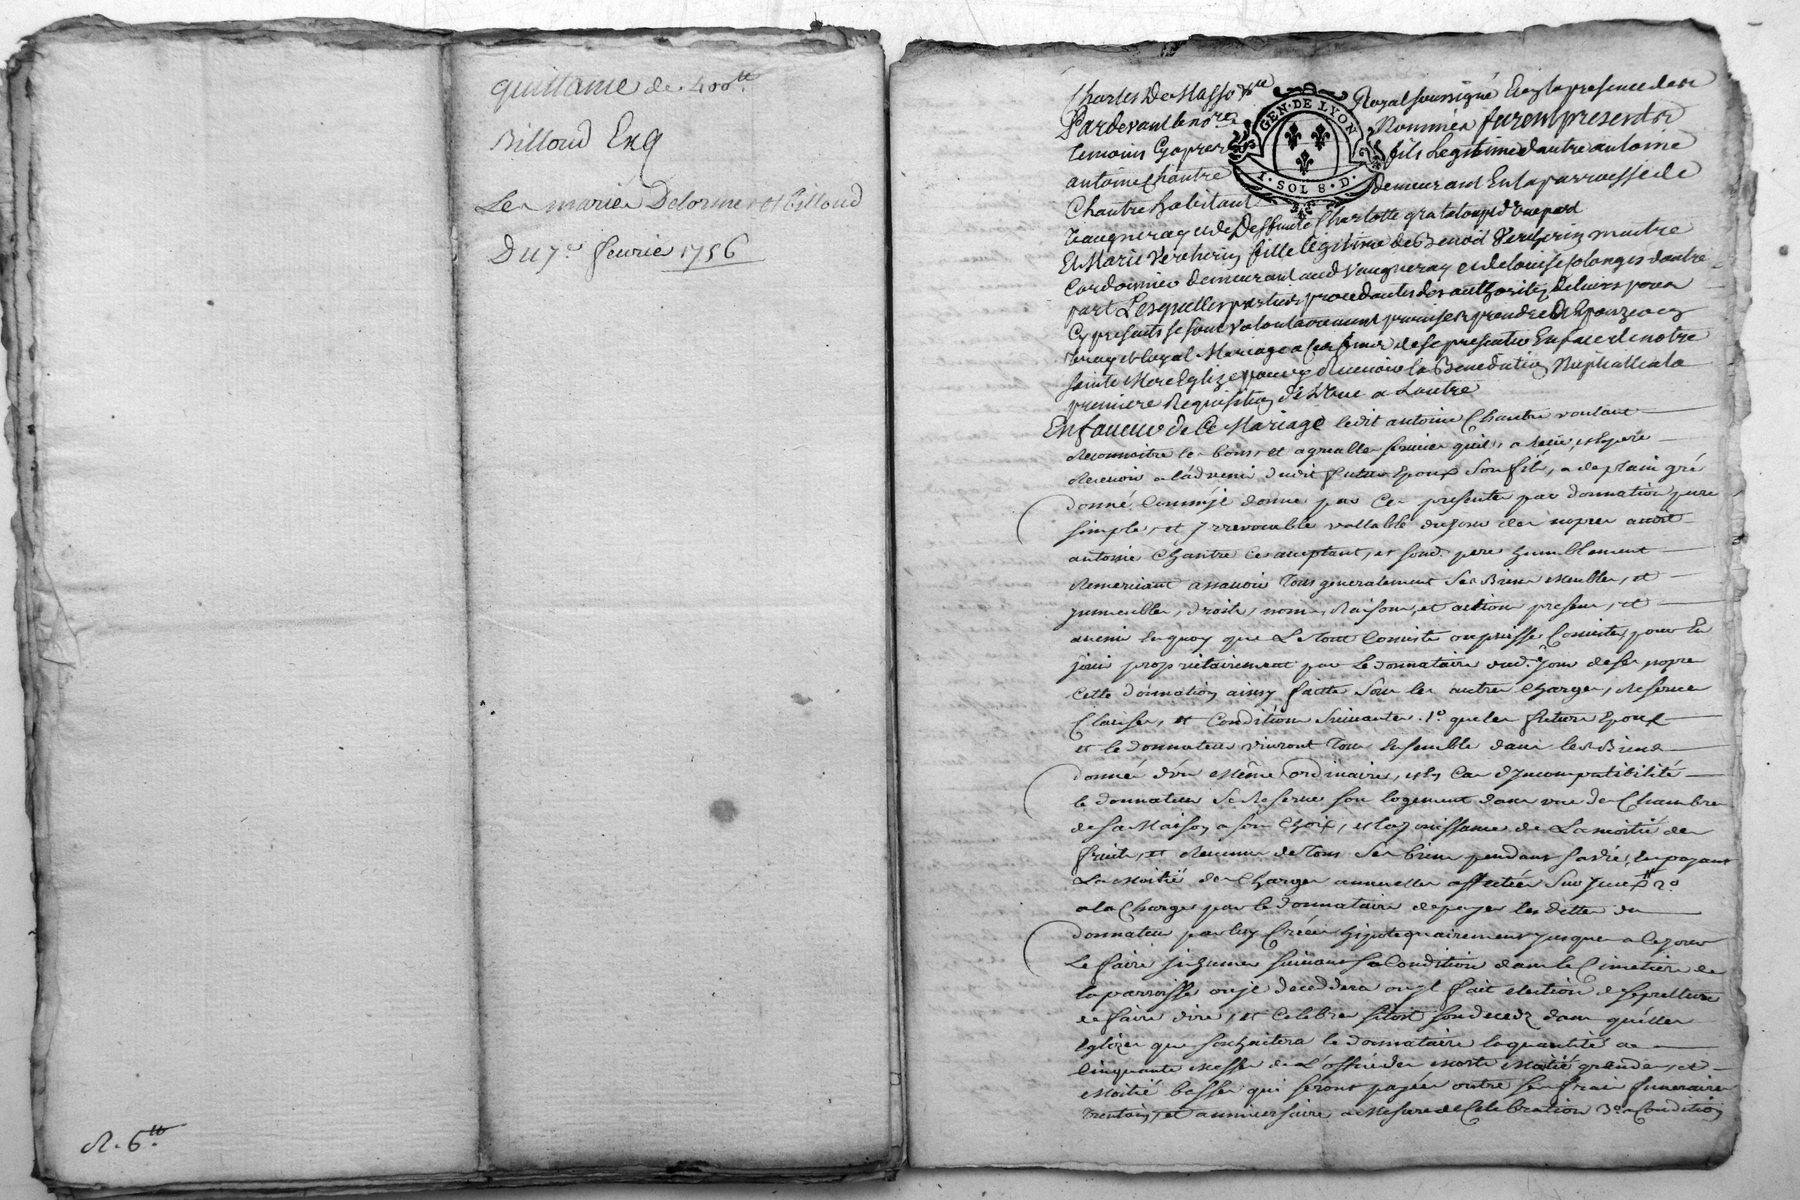 quittance de 400 ₶
Billoud Exq
Les mariés Delorme et billoud
Du 7e fevrier 1756
R. 6 ₶
GEN·DE LYON
1·SOL 8·D·
Charles De Masso
Royal soussigné Et en la presence des
Pardevant le no.re
Nommés furent presents
temoins Cy apres
antoine Chantre
fils Legitime d'autre antoine
Chantre habitant
Demeurant En la parroisse de
Vaugneray et de Deffunte Charlotte d'une part
Et Marie Vercherin fille legitime de Benoit Vercherin maitre
Cordonnier demeurant aud Vaugneray et de Louise d'autre
part Lesquelles parties procedantes des authorités
Cy presents se sont volontairement promises prendre et Epouzer en
vray et Loyal Mariage a de se presenter En face de notre
sainte Mere Eglize pour y recevoir la Benediction Nuptialle a la
premiere Requisition de L'une a Lautre
En faveur de Ce Mariage ledit antoine Chantre voulant
Reconnoitre les bons et agreables services quil a recu, et Espere
Recevoir a l'advenir dudit futur Epoux son fils, a de plain gré
donné, Comme il donne par Ces presentes par donnation pure
simple, et Irrevocable vallable du jour des nopces audit
antoine Chantre Ce acceptant, et sond. pere humblement
Remerciant assavoir tous generalement ses Biens meubles, et
Immeubles, droits, noms, Raisons, et actions presens, et
avenir En quoy que Le tout Consiste ou puisse Consister, pour En
jouir proprietairement par Le donnataire dud. jour de ses nopces
Cette donnation ainsy faitte sous les autres Charges, Reserves
Clauses, et Conditions suivantes. 1.º que les futurs Epoux
et le donnateur vivront tous Ensemble dans les Biens
donnés d'un même ordinaire, et En Cas d'Incompatibilité
le donnateur se Reserve son logement dans une des Chambres
de sa Maison a son Choix, et la Jouissance de La moitié des
fruits, et Revenus de tous ses biens pendant sa vie, En payant
La Moitié des Charges annuelles affectées sur Iceux 2.º
a la Charge par le donnataire de payer les dettes du
donnateur par luy Créées hipotequairement Jusques a Ce jour
Le faire Inhumer suivant sa Condition dans le Cimetiere de
la parroisse ou il deceddera ou y fait election de sepulture
de faire dire, et Celebrer sitost son decedz dans quelles
Eglizes que souhaitera le donnataire la quantité de
Cinquante Messes de L'office des morts Moitié grandes, et
Moitié basses qui seront payées outre ses frais funeraires
trentain, et anniversaire a Mesure de Celebration 3.º a Condition